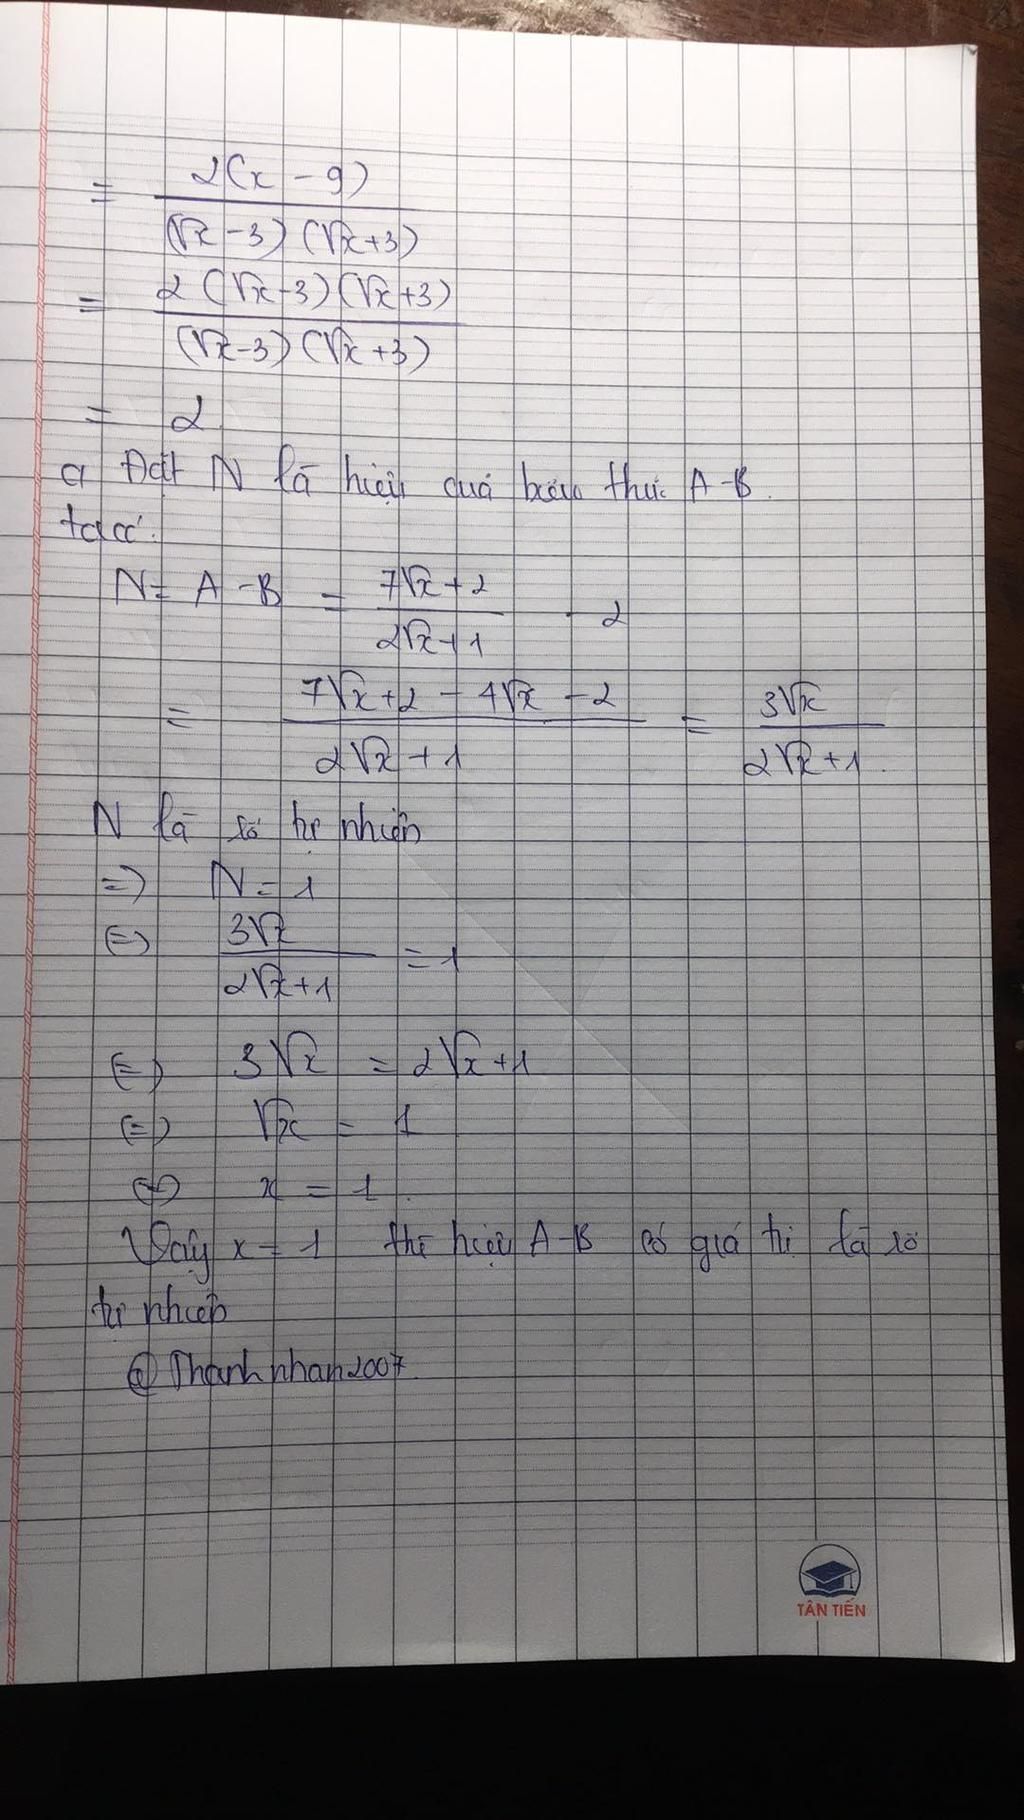 = 2(x - 9) / (√x - 3)(√x + 3)
= 2(√x - 3)(√x + 3) / (√x - 3)(√x + 3)
= 2
c, Đặt N là hiệu của biểu thức A - B.
ta có:
N = A - B = (7√x + 2) / (2√x + 1) - 2
= (7√x + 2 - 4√x - 2) / (2√x + 1) = 3√x / (2√x + 1)
N là số tự nhiên
=> N = 1
(=) 3√x / (2√x + 1) = 1
(=) 3√x = 2√x + 1
(=) √x = 1
(=) x = 1.
Vậy x = 1 thì hiệu A - B có giá trị là số
tự nhiên
@Thanhnhan2007
TÂN TIẾN